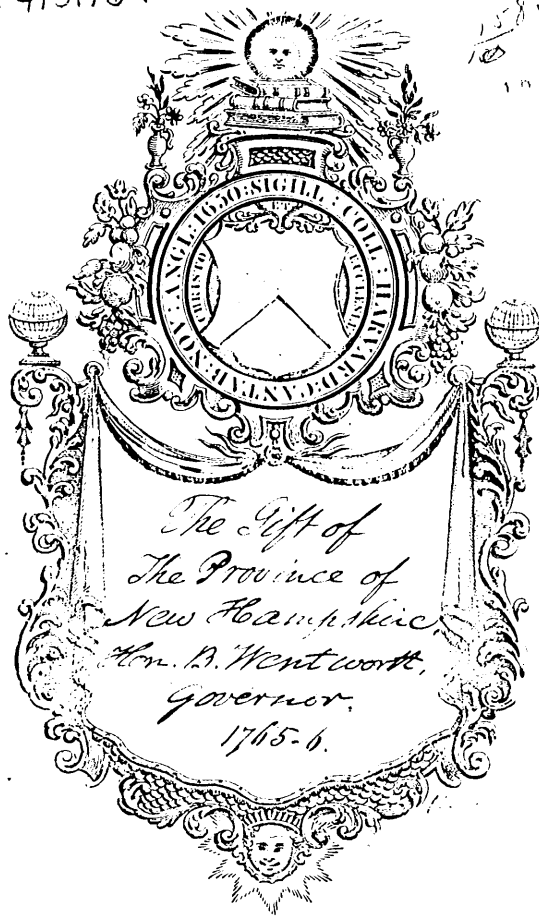 SIGILL : COLL : HARVARD : CANTAB : NOV : ANGL : 1650 :
CHRISTO
ECCLESIÆ
The Gift of
The Province of
New Hampshire,
Hon. B. Wentworth,
Governor.
1765-6.